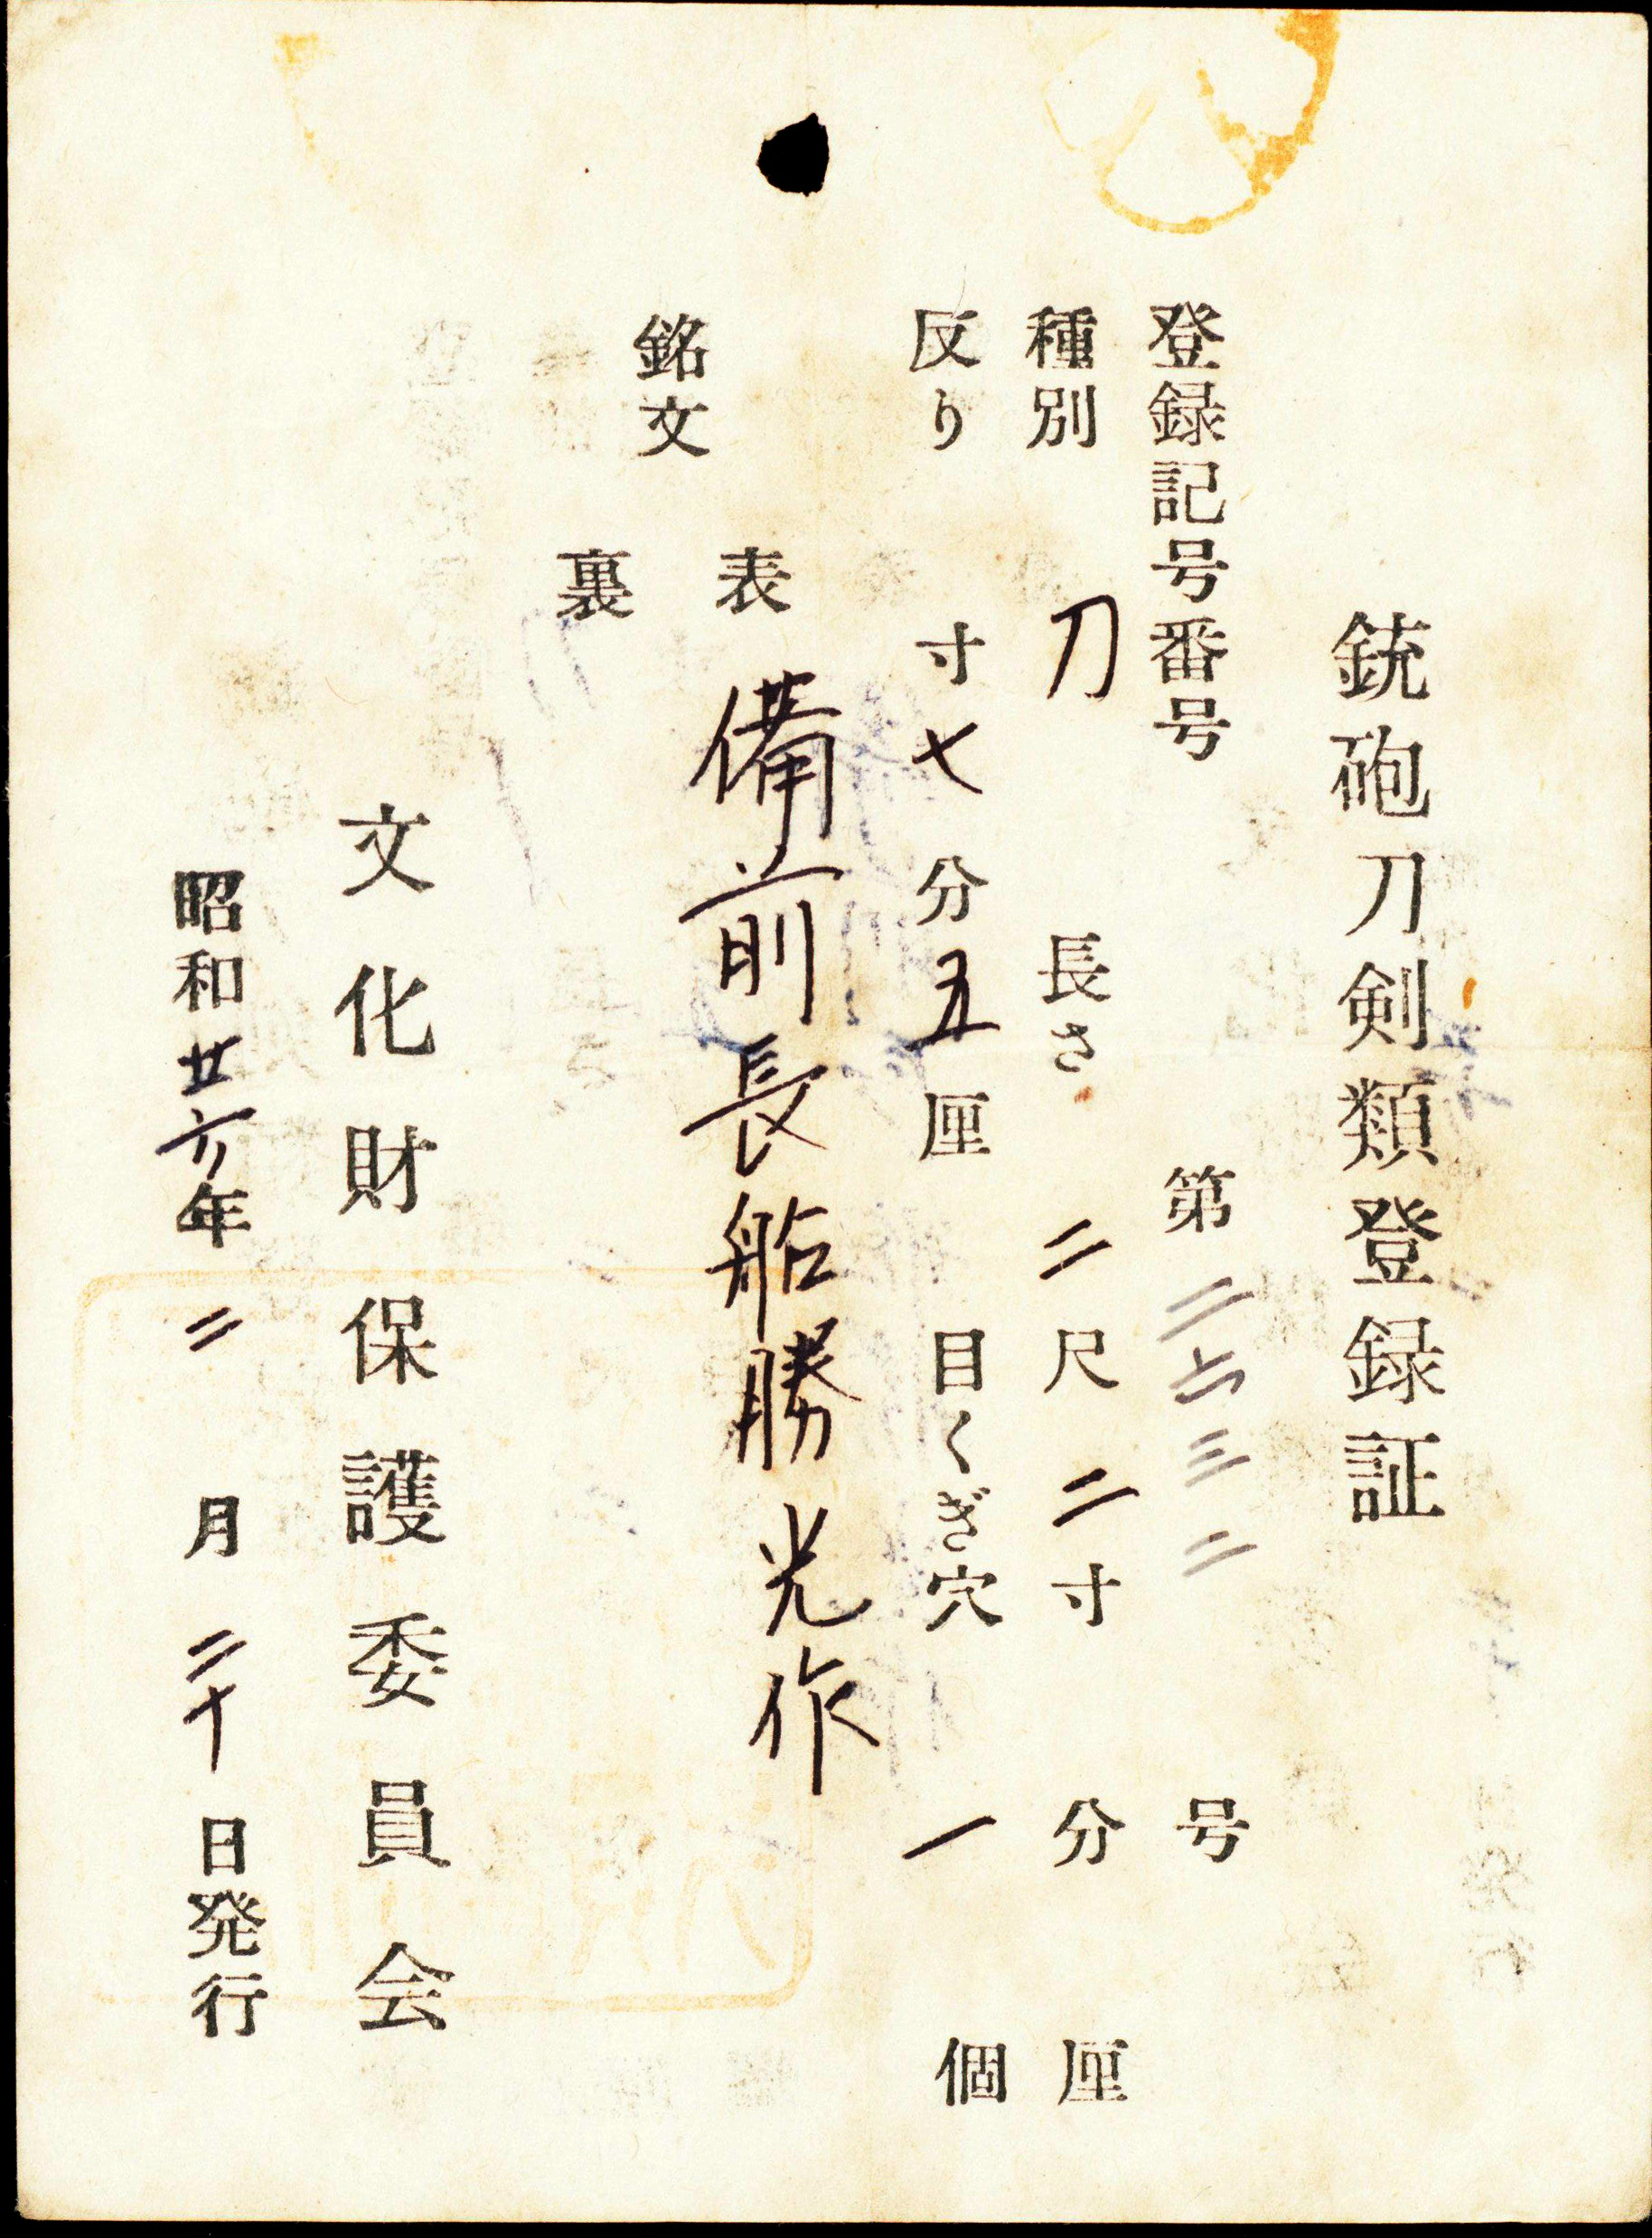 銃砲刀剣類登録証
登録記号番号 第二六三二号
種別 刀 長さ 二尺二寸 分 厘
反り 寸七分五厘 目くぎ穴 一個
銘文
表 備前長船勝光作
裏
文化財保護委員会
昭和廿六年二月二十日発行